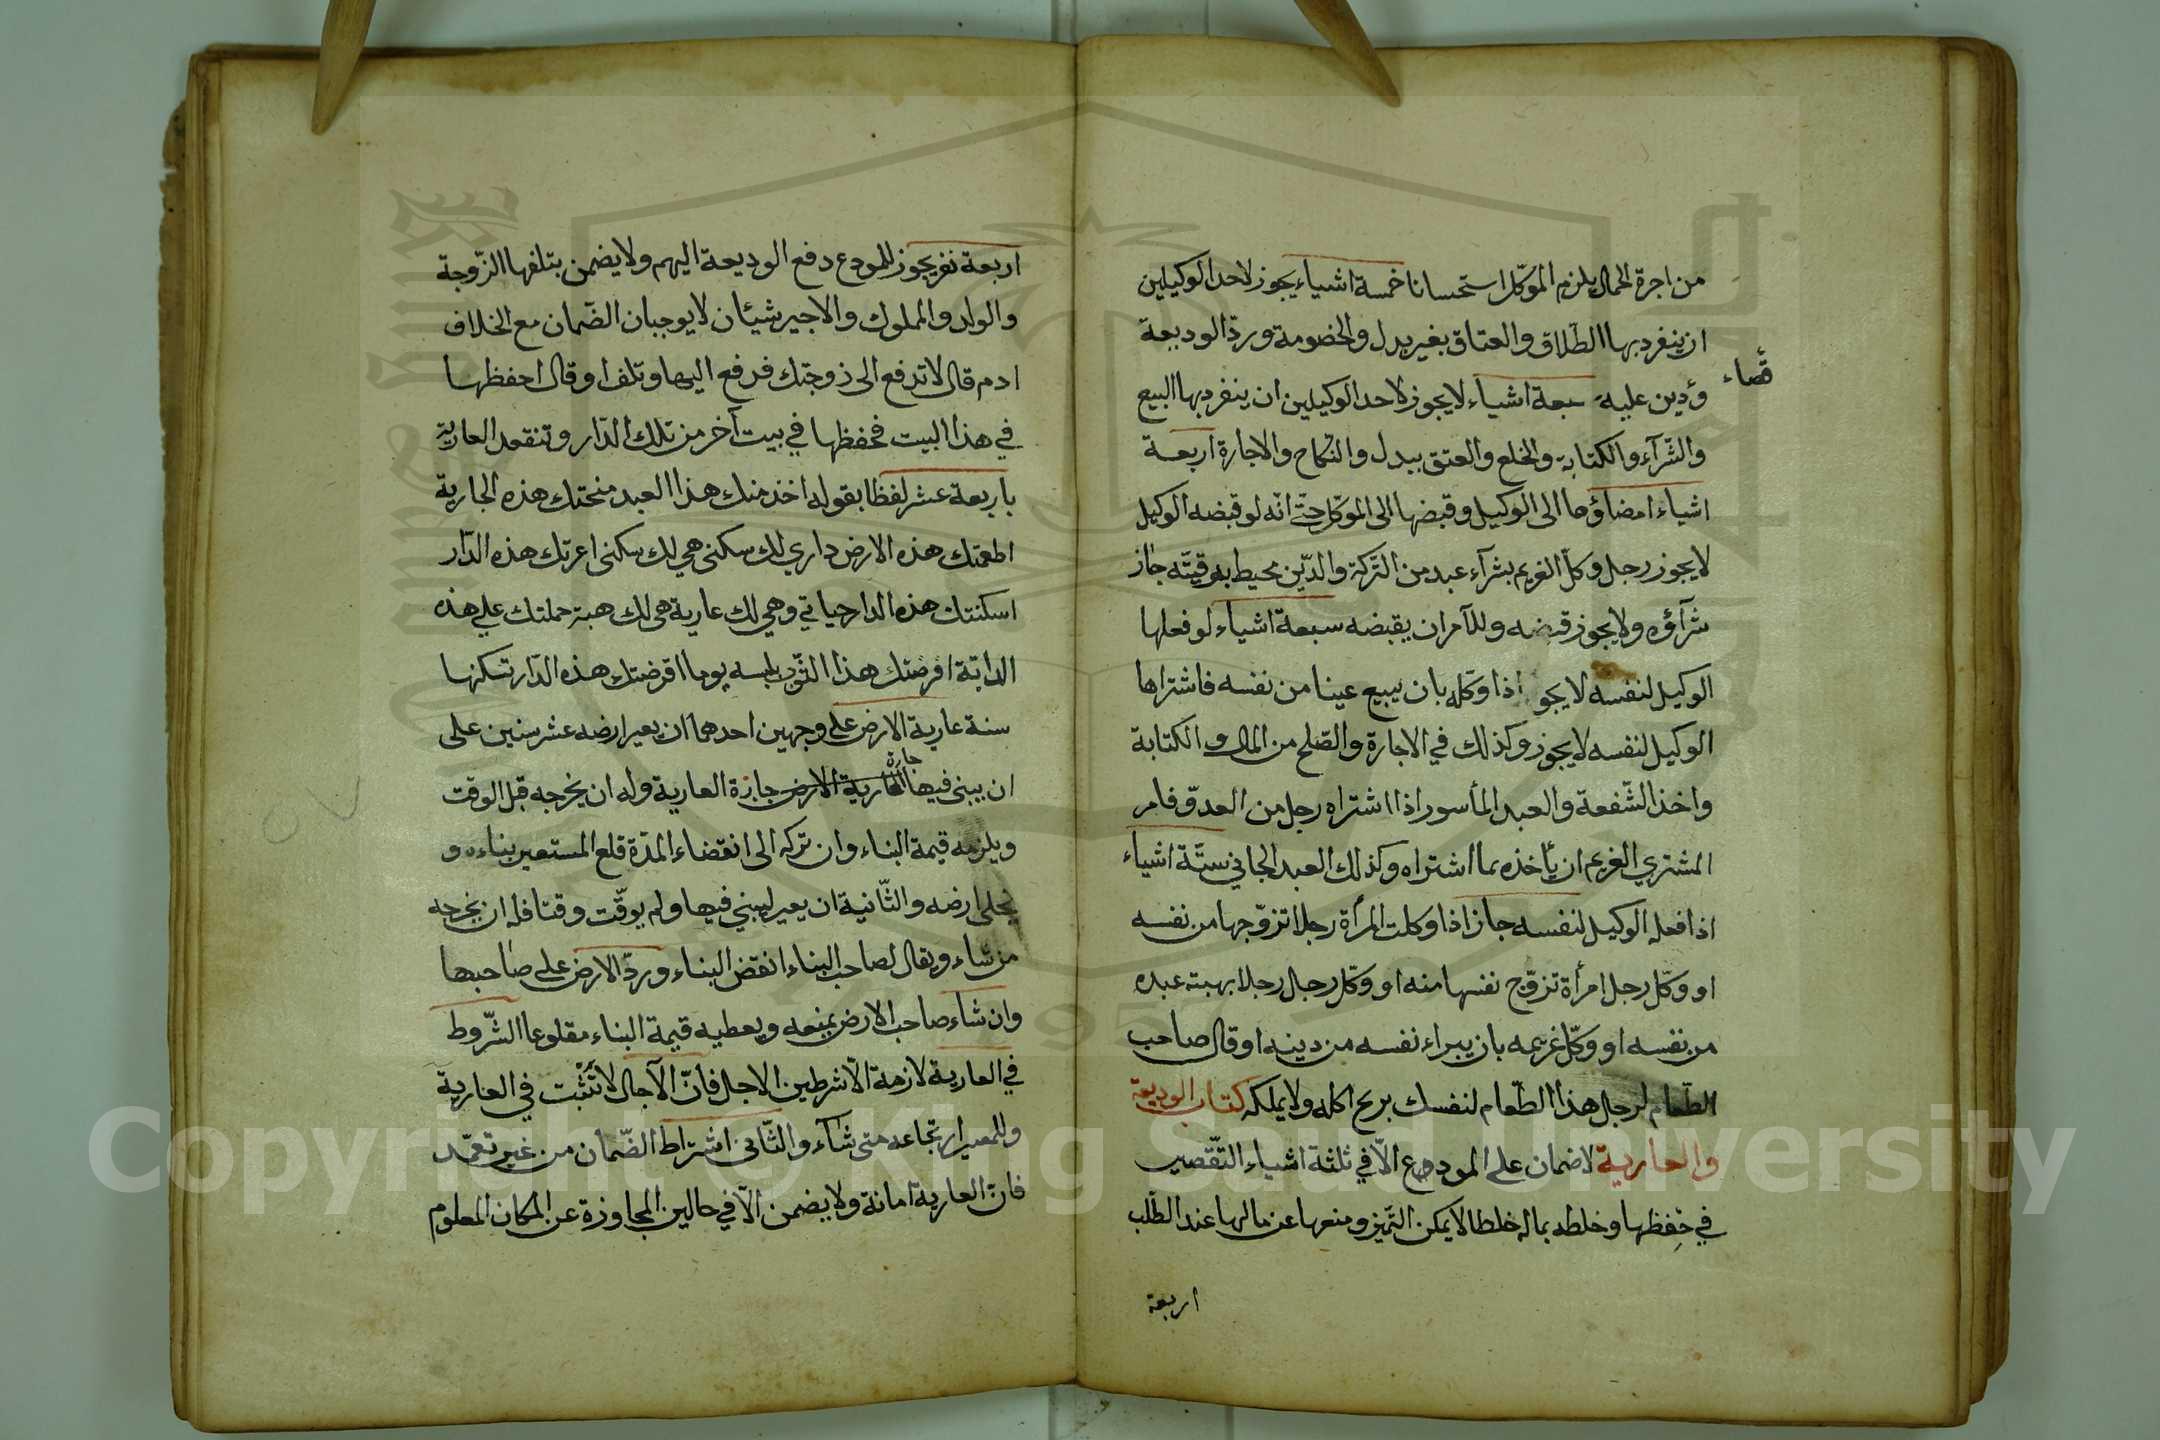 من اجرة الحمال يلزم الموكّل استحسانا خمسة اشياء يجوز لاحد الوكيلين
ان ينفرد بها الطّلاق والعتاق بغير بدل والخصومة وردّ الوديعة
قضاء
ودين عليه سبعة اشياء لا يجوز لاحد الوكيلين ان ينفرد بها البيع
والشّرآء والكتابة والخلع والعتق ببدل والنكاح والاجارة اربعة
اشياء امضاؤها الى الوكيل وقبضها الى الموكّل حتّى انّه لو قبضه الوكيل
لا يجوز رجل وكل الغريم بشرآء عبد من التّركة والدّين محيط به وقيمته جاز
شرآؤه ولا يجوز قبضه وللآمر ان يقبضه سبعة اشياء لو فعلها
الوكيل لنفسه لا يجو اذا وكّله بان يبيع عينا من نفسه فاشتراها
الوكيل لنفسه لا يجوز وكذلك في الاجارة والصّلح من المال والكتابة
واخذ الشّفعة والعبد المأسور اذا اشتراه رجل من العدوّ فامر
المشتري الغريم ان يأخذه بما اشتراه وكذلك العبد الجاني ستّة اشياء
اذا فعله الوكيل لنفسه جاز اذا وكلت المرأة رجلا تزوّجها من نفسه
او وكّل رجل امرأة تزوّج نفسها منه او وكّل رجل رجلا بهبة عبده
من نفسه او وكّل غريمه بان يبراء نفسه من دينه او قال صاحب
الطّعام لرجل هذا الطّعام لنفسك بريح اكله ولا يملكه كتاب الوديعة
والعارية لا ضمان على المودع الاّ في ثلثة اشياء التّقصير
في حفظها وخلطه بماله خلطا لا يمكن التّميز ومنعها عن مالها عند الطّلب
اربعة
اربعة نفر يجوز للمودع دفع الوديعة اليهم ولا يضمن بتلفها الزّوجة
والولد والمملوك والاجير شيئان لا يوجبان الضّمان مع الخلاف
ادم قال لا تدفع الى زوجتك فدفع اليها وتلف او قال احفظها
في هذا البيت فحفظها في بيت آخر من تلك الدّار وتنعقد العارية
باربعة عشر لفظا بقوله اخذ منك هذا العبد منحتك هذه الجارية
اطعمتك هذه الارض داري لك سكنى هي لك سكنى اعرتك هذه الدّار
اسكنتك هذه الدار حياتي وهي لك عارية هي لك هبة حملتك على هذه
الدابّة اقرضتك هذا الثّوب يلبسه يوما اقرضتك هذه الدّار تسكنها
سنة عارية الارض على وجهين احدهما ان يعير ارضه عشر سنين على
جازة
ان يبنى فيها العارية الارض جازة العارية وله ان يخرجه قبل الوقت
ويلزمه قيمة البناء وان تركه الى انقضاء المدّة قلع المستعير بناءه و
يخلى ارضه والثّانية ان يعير ليبني فيها ولم يوقّت وقتا فله ان يخرجه
من شاء ويقال لصاحب البناء انقض البناء وردّ الارض على صاحبها
وان شاء صاحب الارض يمنعه ويعطيه قيمة البناء مقلوعا الشّروط
في العارية لازمة الاّ شرطين الاجل فانّ الآجال لا تثبت في العارية
وللمعير ارتجاعه متى شآء والثّانى اشتراط الضّمان من غير تعمّد
فانّ العارية امانة ولا يضمن الاّ في حالين المجاوزة عن المكان المعلوم
Copyright © King Saud University